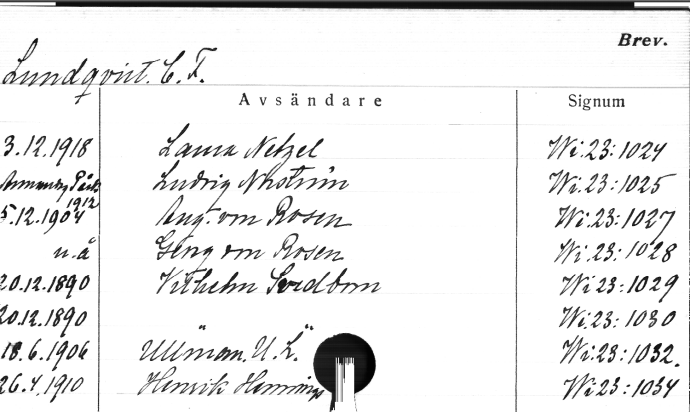 Brev.
Lundqvist. C. F.
Avsändare Signum
3.12.1918 Laura Netzel Wi.23:1024
Ludvig Norström Wi.23:1025
1912
5.12.1904 Aug. von Rosen Wi.23:1027
u.å Georg von Rosen Wi.23:1028
20.12.1890 Vilhelm Svedbom Wi.23:1029
20.12.1890 " " Wi.23:1030
18.6.1906 Ullman. U. L. Wi.23:1032.
26.4.1910 Henrik Hennings Wi.23:1034